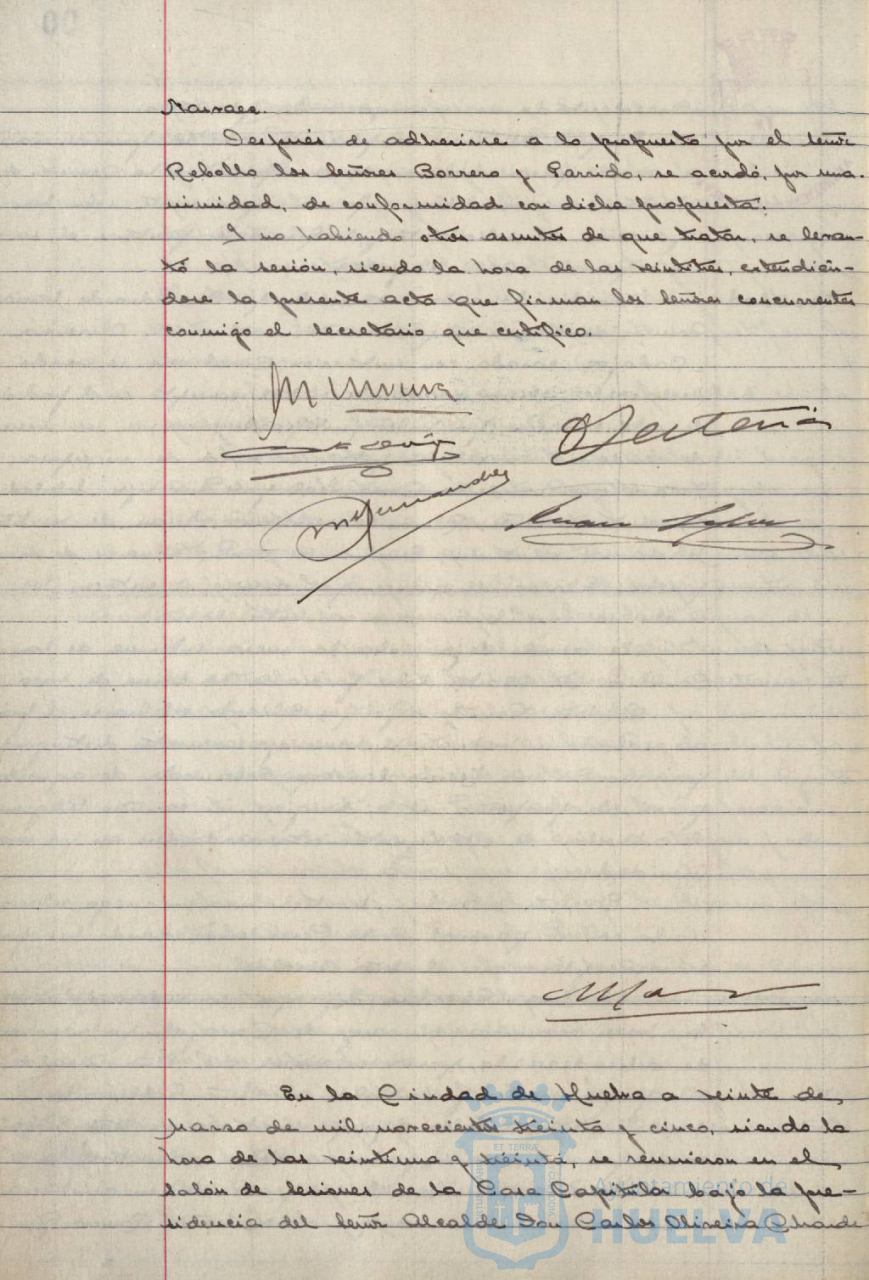 Narvaez.
Después de adherirse a lo propuesto por el señor
Rebollo los señores Borrero y Garrido, se acordó, por una-
nimidad, de conformidad con dicha propuesta.
Y no habiendo otros asuntos de que tratar, se levan-
tó la sesión, siendo la hora de las veintitres, extendién-
dose la presente acta que firman los señores concurrentes
conmigo el secretario que certifico.
M Hernandez
En la Ciudad de Huelva a veinte de
Marzo de mil novecientos treinta y cinco, siendo la
hora de las veintiuna y treinta, se reunieron en el
Salón de Sesiones de la Casa Capitular bajo la pre-
sidencia del Señor Alcalde Don Carlos Oliveira Chardi
Ayuntamiento de
HUELVA